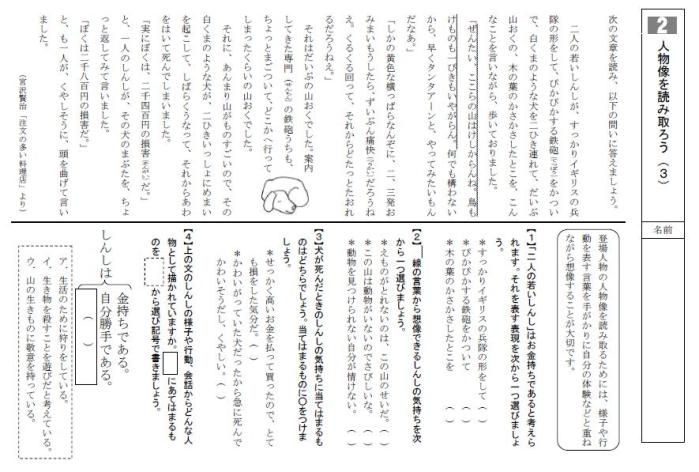 2
人物像を読み取ろう（3）
名前
次の文章を読み、以下の問いに答えましょう。
二人の若いしんしが、すっかりイギリスの兵
隊の形をして、ぴかぴかする鉄砲（てっぽう）をかつい
で、白くまのような犬を二ひき連れて、だいぶ
山おくの、木の葉のかさかさしたとこを、こん
なことを言いながら、歩いておりました。
「ぜんたい、ここらの山はけしからんね。鳥も
けものも一ぴきもいやがらん。何でも構わない
から、早くタンタアーンと、やってみたいもん
だなあ。」
「しかの黄色な横っぱらなんぞに、二、三発お
みまいもうしたら、ずいぶん痛快（つうかい）だろうね
え。くるくる回って、それからどたっとたおれ
るだろうねえ。」
それはだいぶの山おくでした。案内
してきた専門（せんもん）の鉄砲うちも、
ちょっとまごついて、どこかへ行って
しまったくらいの山おくでした。
それに、あんまり山がものすごいので、その
白くまのような犬が、二ひきいっしょにめまい
を起こして、しばらくうなって、それからあわ
をはいて死んでしまいました。
「実にぼくは、二千四百円の損害（そんがい）だ。」
と、一人のしんしが、その犬のまぶたを、ちょ
っと返してみて言いました。
「ぼくは二千八百円の損害だ。」
と、も一人が、くやしそうに、頭を曲げて言い
ました。
（宮沢賢治「注文の多い料理店」より）
登場人物の人物像を読み取るためには、様子や行
動を表す言葉を手がかりに自分の体験などと重ね
ながら想像することが大切です。
【1】「二人の若いしんし」はお金持ちであると考えら
れます。それを表す表現を次から一つ選びましょ
う。
＊すっかりイギリスの兵隊の形をして（　）
＊ぴかぴかする鉄砲をかついで（　）
＊木の葉のかさかさしたとこを（　）
【2】＿＿線の言葉から想像できるしんしの気持ちを次
から一つ選びましょう。
＊えものがとれないのは、この山のせいだ。（　）
＊この山は動物がいないのでさびしいな。（　）
＊動物を見つけられない自分が情けない。（　）
【3】犬が死んだときのしんしの気持ちに当てはまるも
のはどちらでしょう。当てはまるものに○をつけま
しょう。
＊せっかく高いお金を払って買ったので、とて
も損をした気分だ。（　）
＊かわいがっていた犬だったから急に死んで
かわいそうだし、くやしい。（　）
【4】上の文のしんしの様子や行動、会話からどんな人
物として描かれていますか。□にあてはまるも
のを□から選び記号で書きましょう。
しんしは
金持ちである。
自分勝手である。
（　）
ア、生活のために狩りをしている。
イ、生き物を殺すことを遊びだと考えている。
ウ、山の生きものに敬意を持っている。